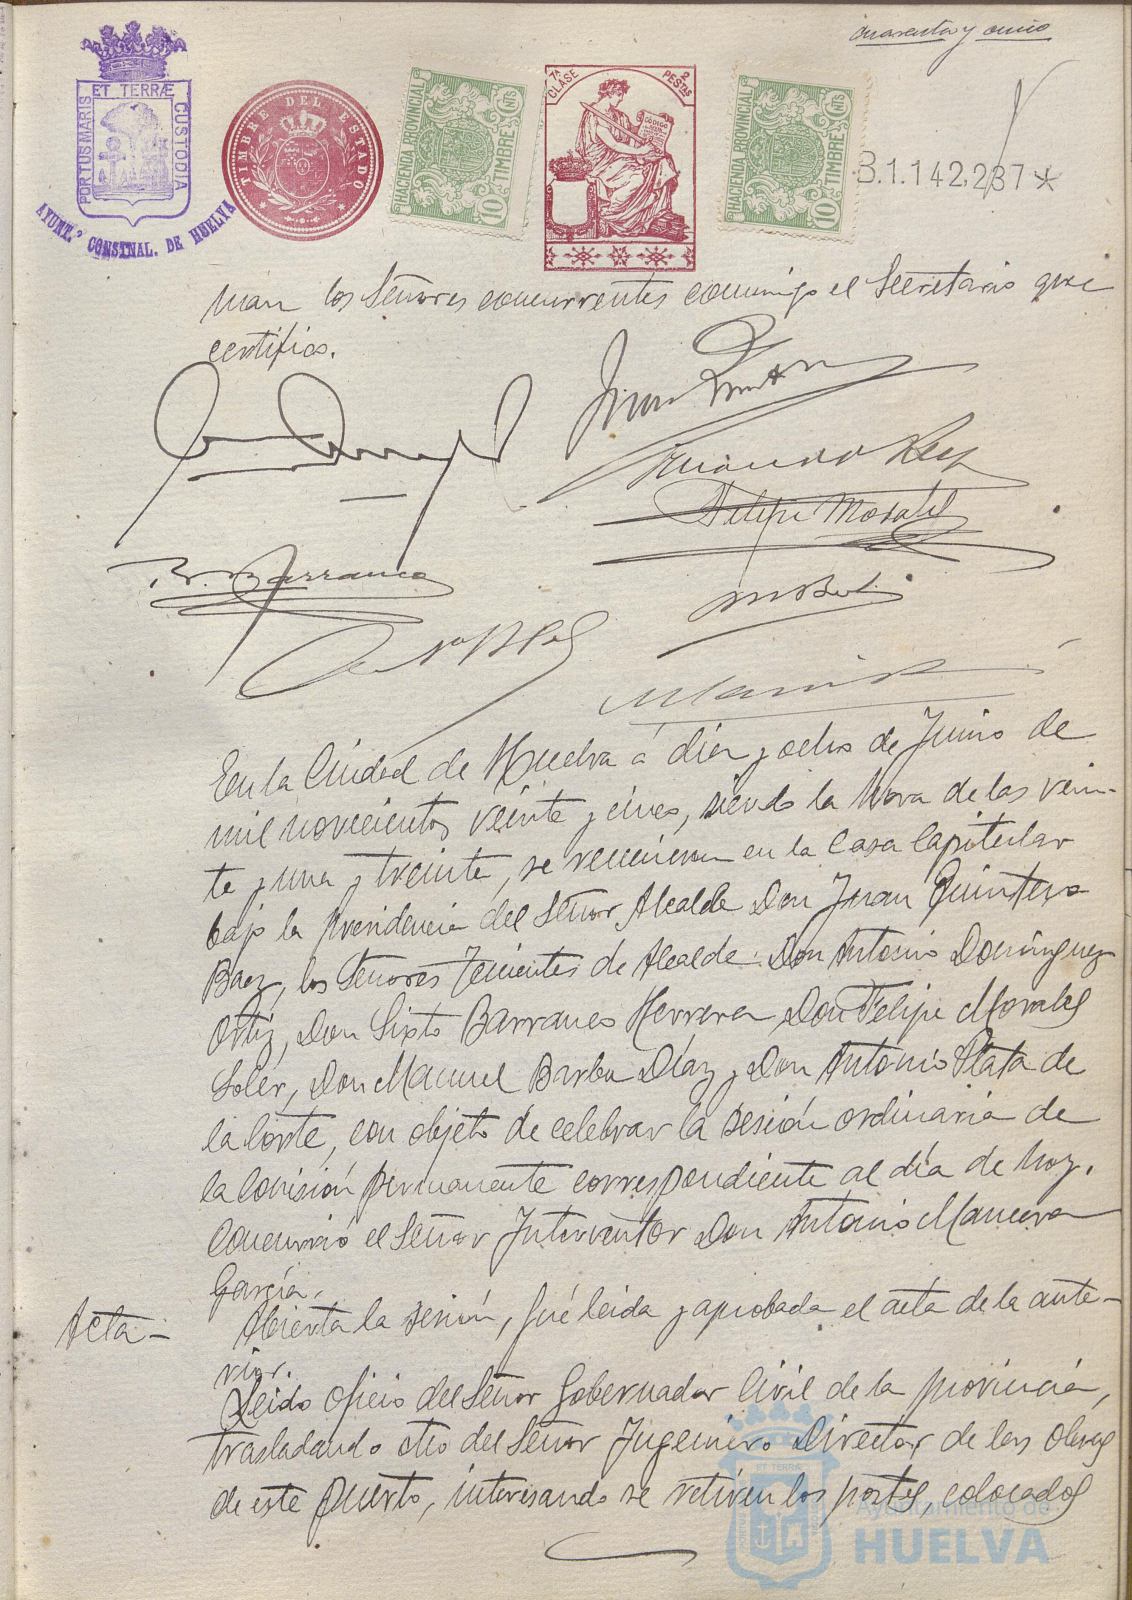 cuarenta y cinco
PORTUS MARIS ET TERRÆ CUSTODIA
AYUNT.º CONSTNAL. DE HUELVA
TIMBRE DEL ESTADO
HACIENDA PROVINCIAL
TIMBRE
10 CNTS
7ª CLASE
2 PESTAS
CODIGO
HACIENDA PROVINCIAL
TIMBRE
10 CNTS
B.1.142,237*
man los Señores concurrentes conmigo el Secretario que
certifico.
Fernando Rey
Felipe Morales
S. Barranco
En la Ciudad de Huelva á diez y ocho de Junio de
mil novecientos veinte y cinco, siendo la hora de las vein-
te y una y treinta, se reunieron en la Casa Capitular
bajo la Presidencia del Señor Alcalde Don Juan Quintero
Baez, los Señores Tenientes de Alcalde: Don Antonio Domínguez
Ortiz, Don Sixto Barranco Herrera Don Felipe Morales
Soler, Don Manuel Barba Díaz y Don Antonio Plata de
la Corte, con objeto de celebrar la sesión ordinaria de
la Comisión permanente correspondiente al día de hoy.
Concurrió el Señor Interventor Don Antonio Mancera
García.
Acta- Abierta la sesión, fué leida y aprobada el acta de la ante-
rior.
Leido oficio del Señor Gobernador Civil de la provincia,
trasladando otro del Señor Ingeniero Director de las Obras
de este puerto, interesando se retiren los postes colocados
Ayuntamiento de
HUELVA